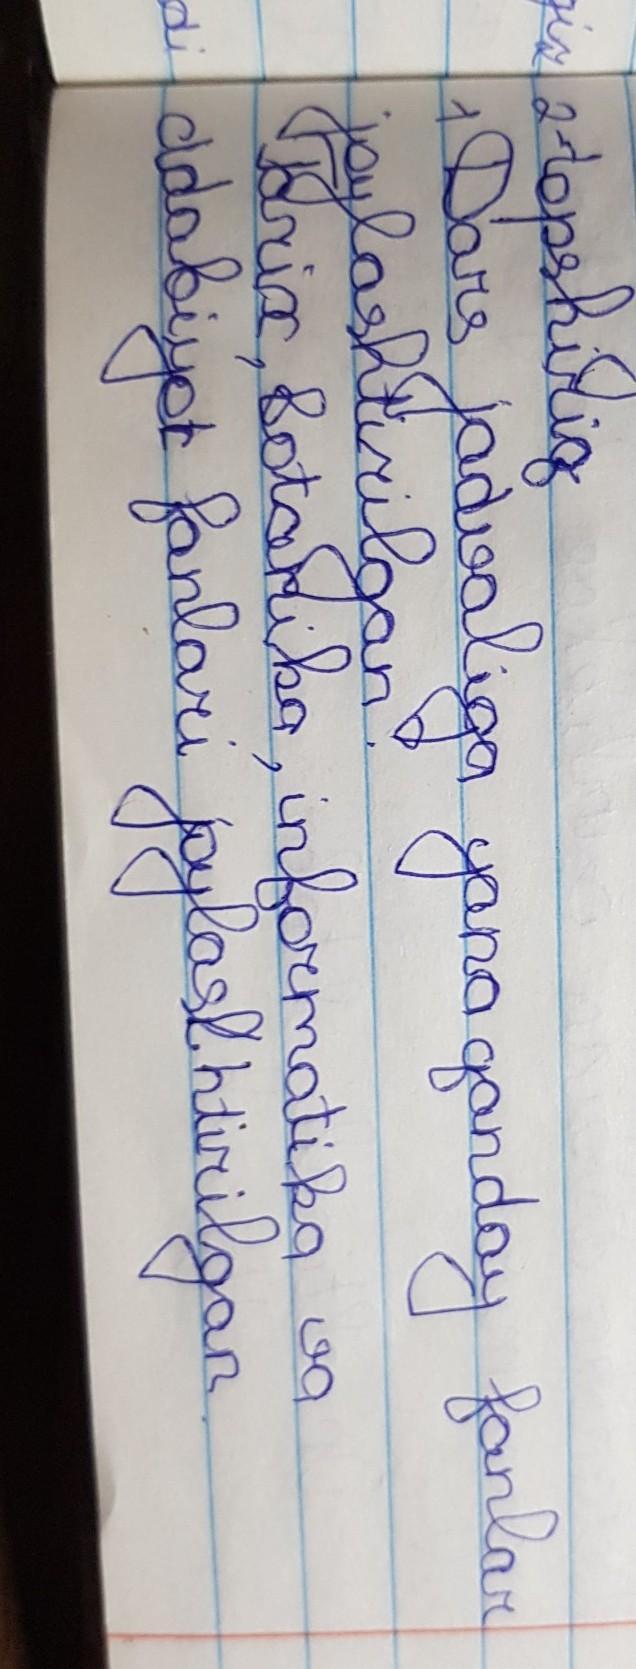 2-topshiriq
1 Dars jadvaliga yana qanday fanlar
joylashtirilgan.
Tarix, botanika, informatika va
adabiyot fanlari joylashhtirilgan
di